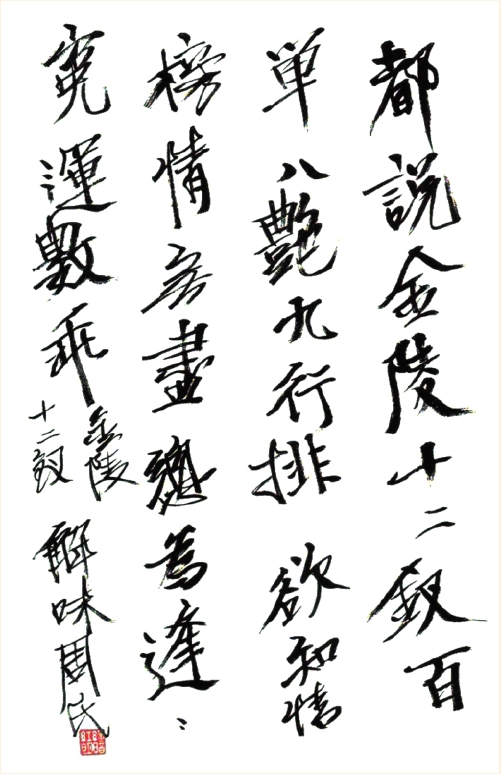 都說金陵十二釵百
單八艷九行排 欲知情
榜情畫總為逢
冤運數乖
金陵
十二釵
解味周氏